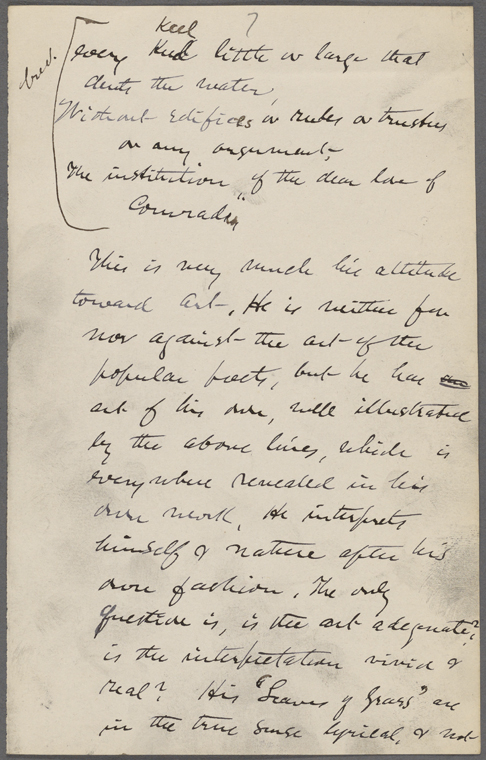 7
brev.
keel
every Keel little or large that
dents the water,
Without edifices or rules or trustees
or any argument,
The institution of the dear love of
Comrades"
This is very much his attitude
toward art. He is neither for
nor against the art of the
popular poets, but he has an
art of his own, well illustrated
by the above lines, which is
everywhere revealed in his
own work. He interprets
himself & nature after his
own fashion. The only
question is, is the art adequate?
is the interpretation vivid &
real? His "Leaves of Grass" are
in the true sense lyrical, & not